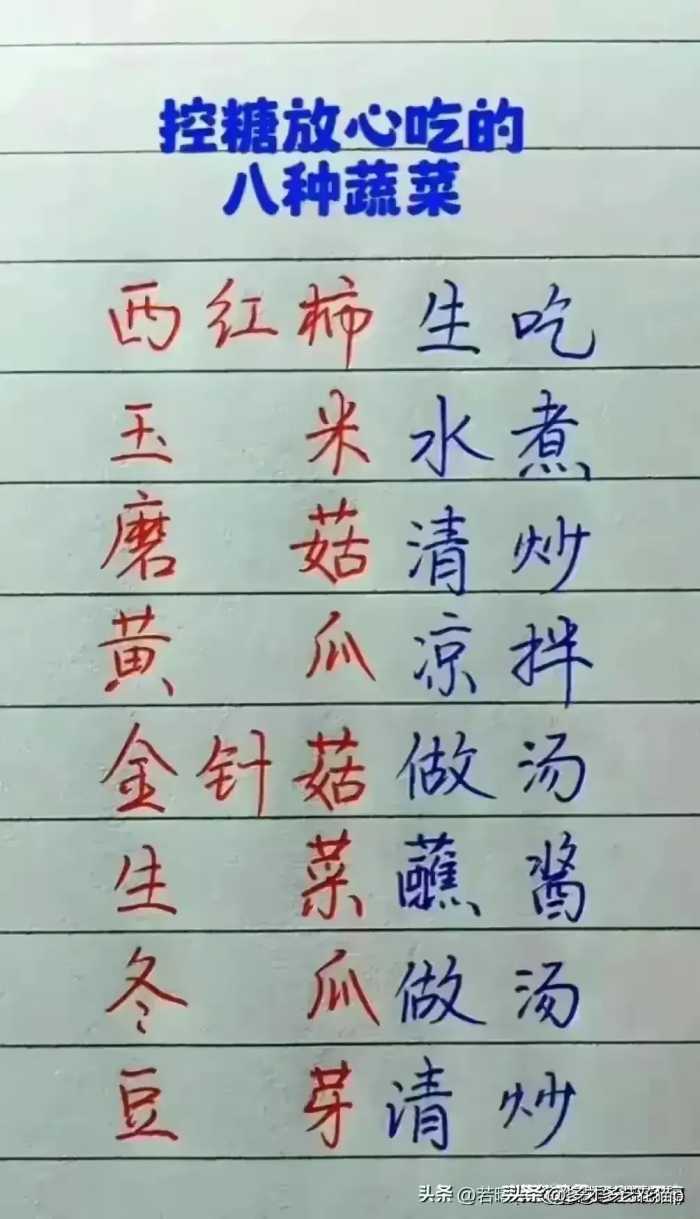 控糖放心吃的
八种蔬菜
西红柿生吃
玉米水煮
磨菇清炒
黄瓜凉拌
金针菇做汤
生菜蘸酱
冬瓜做汤
豆芽清炒
头条